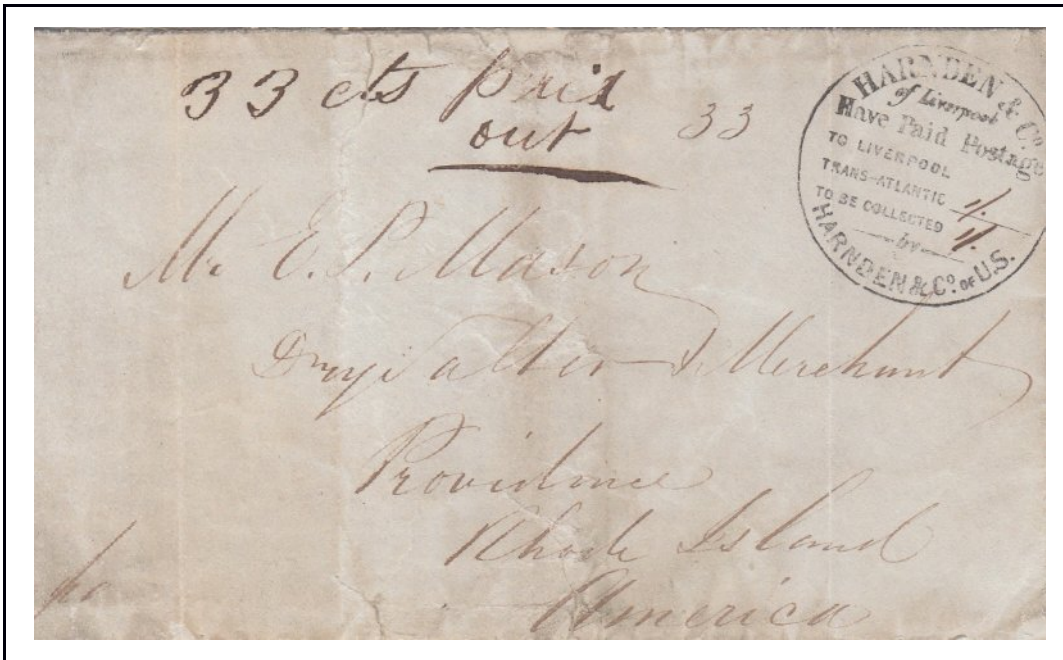 33 cts paid
out
33
HARNDEN & Co.
of Liverpool
Have Paid Postage
TO LIVERPOOL
TRANS-ATLANTIC 1/.
TO BE COLLECTED 1/.
by
HARNDEN & Co. OF U.S.
Mr E. P. Mason
DrySalter & Merchant
Providence
Rhode Island
America